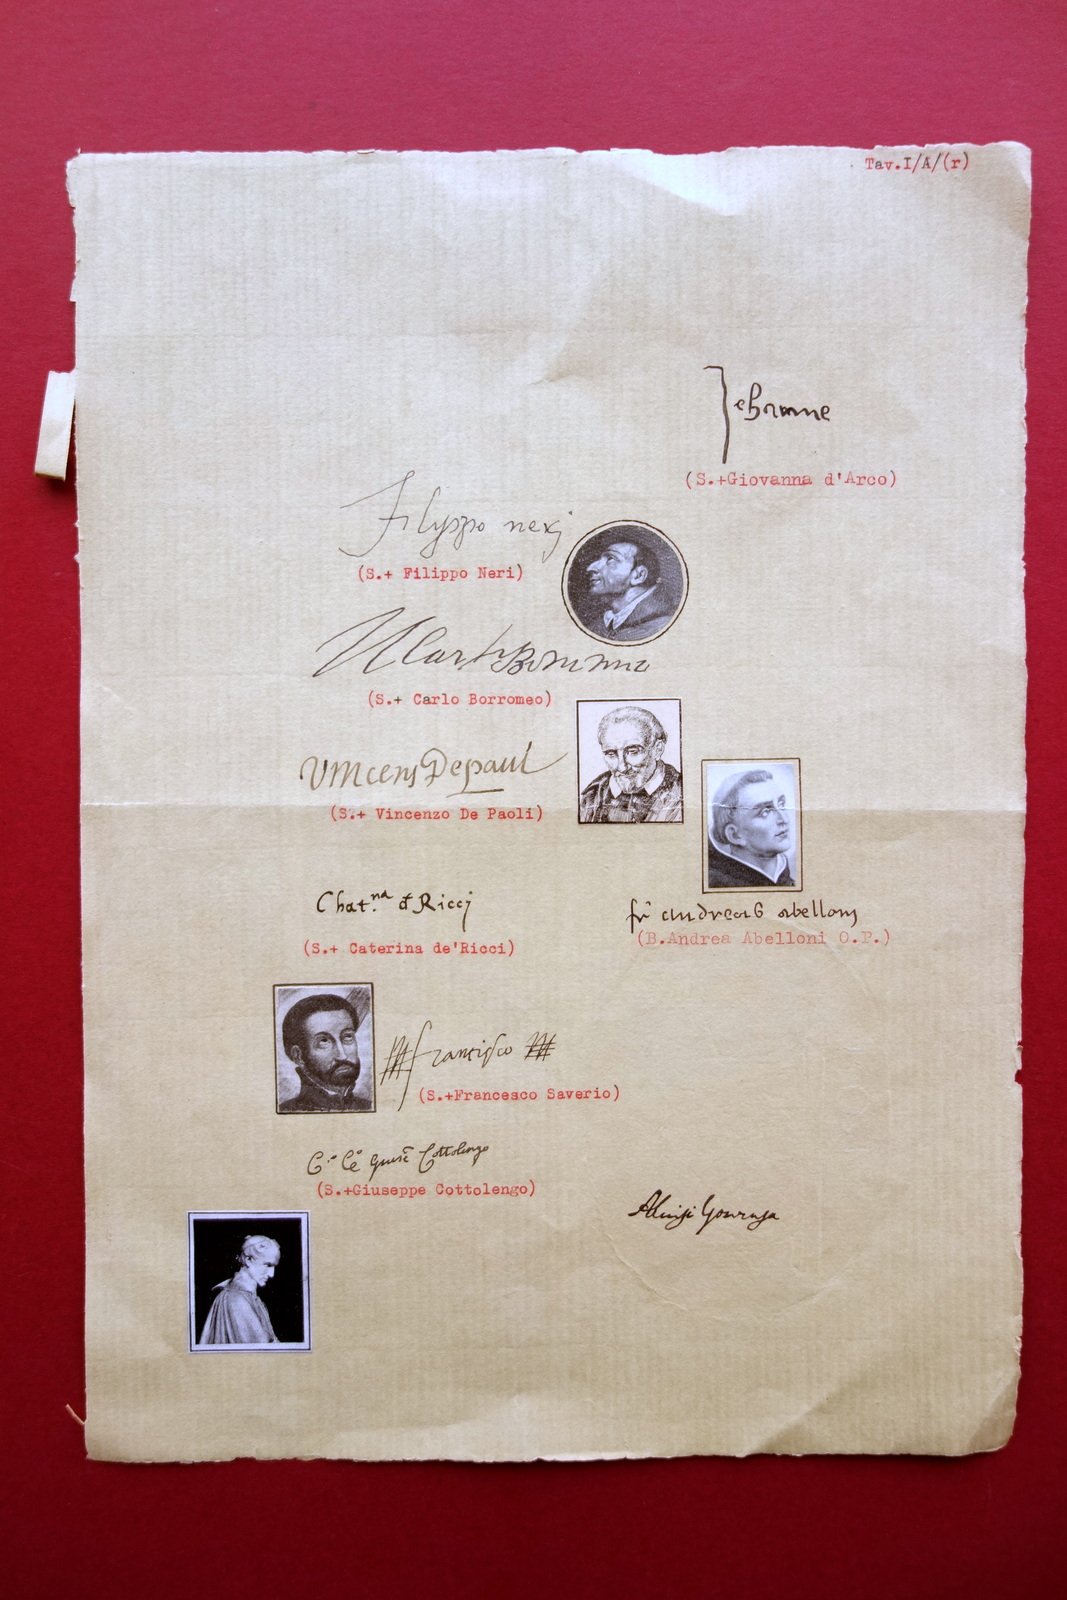 Tav.I/A/(r)
Jehanne
(S.+Giovanna d'Arco)
Filippo neri
(S.+ Filippo Neri)
(S.+ Carlo Borromeo)
Vincens Depaul
(S.+ Vincenzo De Paoli)
Chat.na d Ricci
(S.+ Caterina de'Ricci)
fr andreas abelloni
(B.Andrea Abelloni O.P.)
francisco
(S.+Francesco Saverio)
Cottolengo
(S.+Giuseppe Cottolengo)
Aluigi Gonzaga